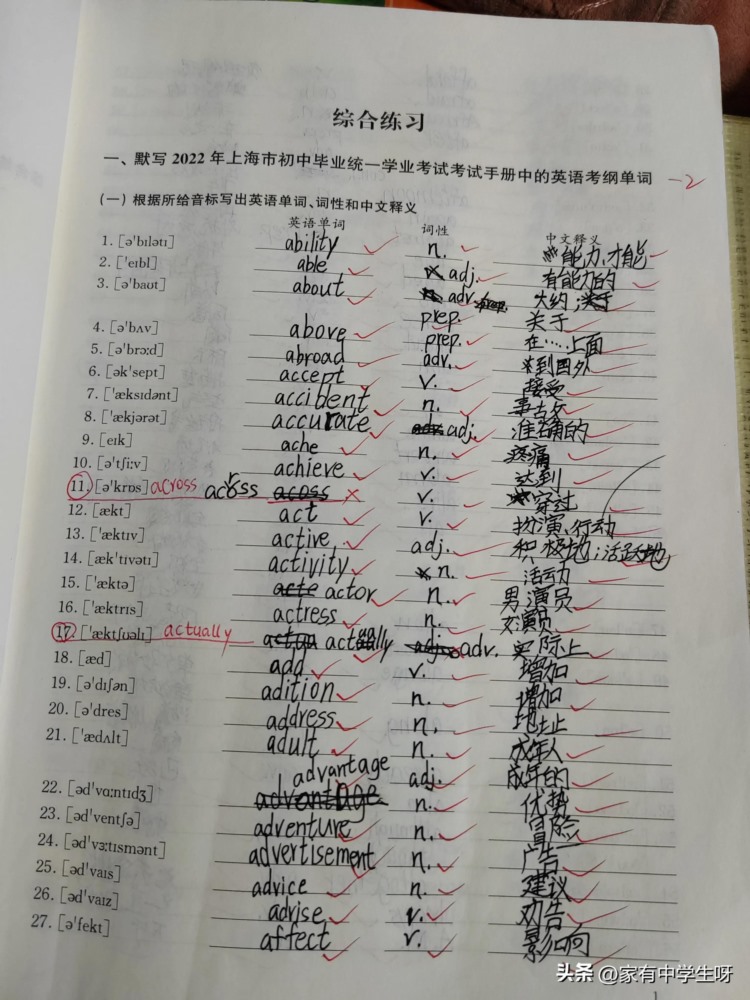 综合练习
一、默写 2022 年上海市初中毕业统一学业考试考试手册中的英语考纲单词 -2
(一) 根据所给音标写出英语单词、词性和中文释义
英语单词 词性 中文释义
1. [ə'bɪlətɪ] ability n. 能力,才能
2. ['eɪbl] able adj. 有能力的
3. [ə'baʊt] about adv. 大约
prep. 关于
4. [ə'bʌv] above prep. 在……上面
5. [ə'brɔ:d] abroad adv. 到国外
6. [ək'sept] accept v. 接受
7. ['æksɪdənt] accident n. 事故
8. ['ækjərət] accurate adj. 准确的
9. [eɪk] ache n. 疼痛
10. [ə'tʃi:v] achieve v. 达到
11. [ə'krɒs] across across acoss v. 穿过
12. [ækt] act v. 扮演,行动
13. ['æktɪv] active adj. 积极地;活跃地
14. [æk'tɪvətɪ] activity n. 活动
15. ['æktə] acte actor n. 男演员
16. ['æktrɪs] actress n. 女演员
17. ['æktʃʊəlɪ] actually actually adv. 实际上
18. [æd] add v. 增加
19. [ə'dɪʃən] adition n. 增加
20. [ə'dres] address n. 地址
21. ['ædʌlt] adult n. 成年人
adj. 成年的
22. [əd'vɑ:ntɪdʒ] advantage n. 优势
23. [əd'ventʃə] adventure n. 冒险
24. [əd'vɜ:tɪsmənt] advertisement n. 广告
25. [əd'vaɪs] advice n. 建议
26. [əd'vaɪz] advise v. 劝告
27. [ə'fekt] affect v. 影响
头条 @家有中学生呀
1